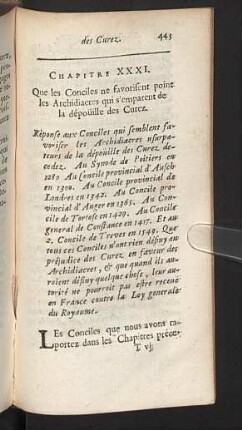 des Curez. 443
CHAPITRE XXXI.
Que les Conciles ne favorisent point
les Archidiacres qui s'emparent de
la dépoüille des Curez.
Réponse aux Conciles qui semblent fa-
voriser les Archidiacres usurpa-
teurs de la dépoüille des Curez de-
cedez. Au Synode de Poitiers en
1280 Au Concile provincial d'Ausch
en 1300. Au Concile provincial de
Londres en 1342. Au Concile pro-
vincial d'Anger en 1365. Au Con-
cile de Tortose en 1429. Au Concile
general de Constance en 1417. Et au
2. Concile de Treves en 1549. Que
tous ces Conciles n'ont rien définy au
préjudice des Curez en faveur des
Archidiacres, & que quand ils au-
roient définy quelque chose, leur au-
torité ne pourroit pas estre receuë
en France contre la Loy generale
du Royaume.
LEs Conciles que nous avons ra-
portez dans les Chapitres préce-
T vj